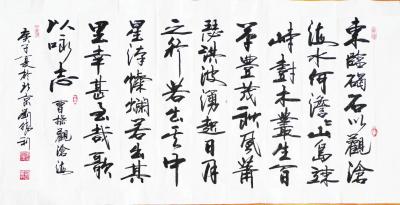 東臨碣石以觀滄
海水何澹々山島竦
峙樹木叢生百
草豐茂秋風蕭
瑟洪波湧起日月
之行若出其中
星漢燦爛若出其
里幸甚至哉歌
以詠志 曹操觀滄海
庚子夏於北京劉利